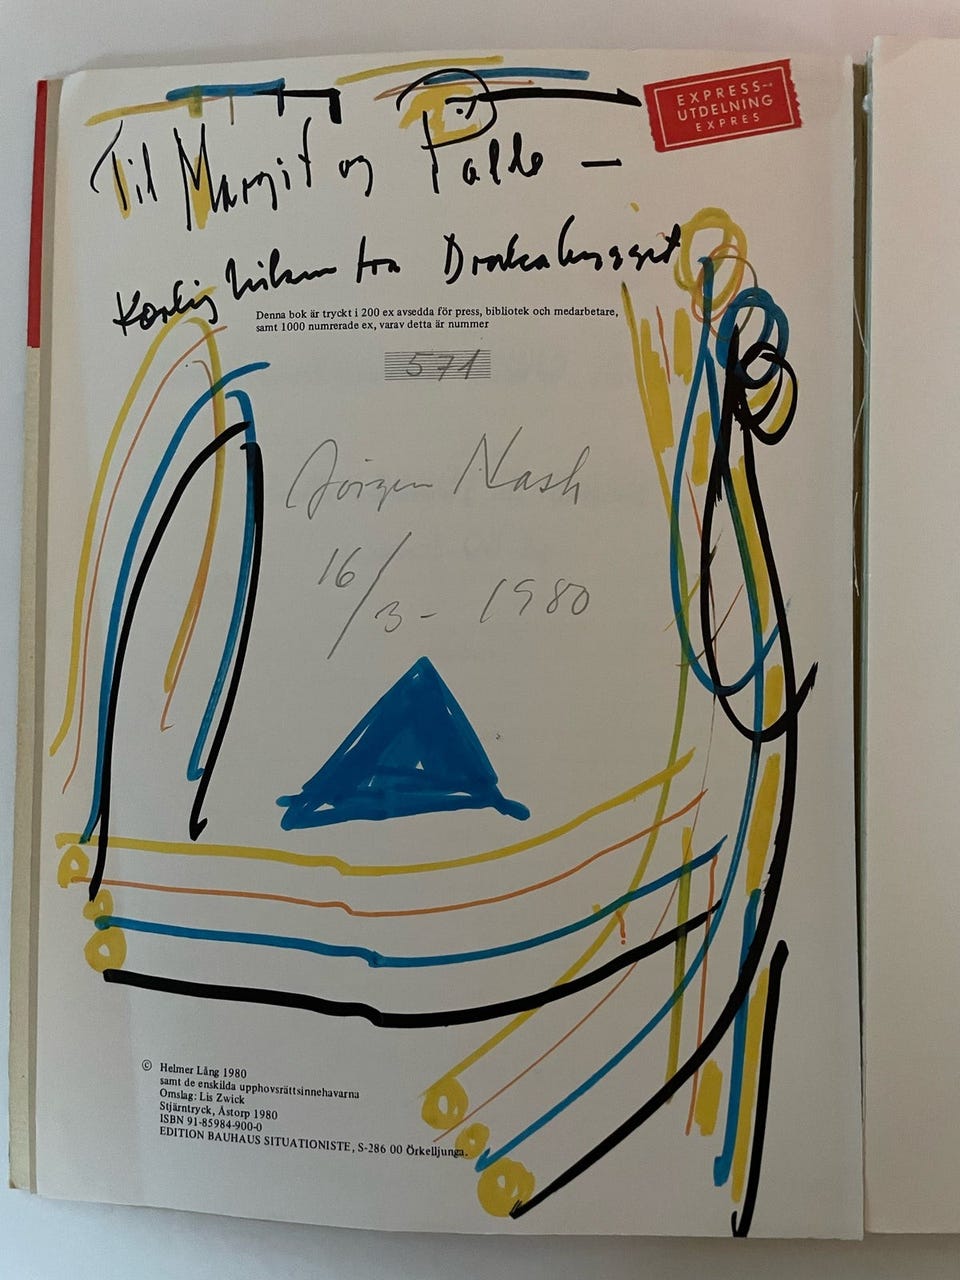 EXPRESS-
UTDELNING
EXPRES
Til Margit og Palle —
Kærlig hilsen fra Drakabygget
Denna bok är tryckt i 200 ex avsedda för press, bibliotek och medarbetare,
samt 1000 numrerade ex, varav detta är nummer
571
Jörgen Nash
16/3 - 1980
© Helmer Lång 1980
samt de enskilda upphovsrättsinnehavarna
Omslag: Lis Zwick
Stjärntryck, Åstorp 1980
ISBN 91-85984-900-0
EDITION BAUHAUS SITUATIONISTE, S-286 00 Örkelljunga.